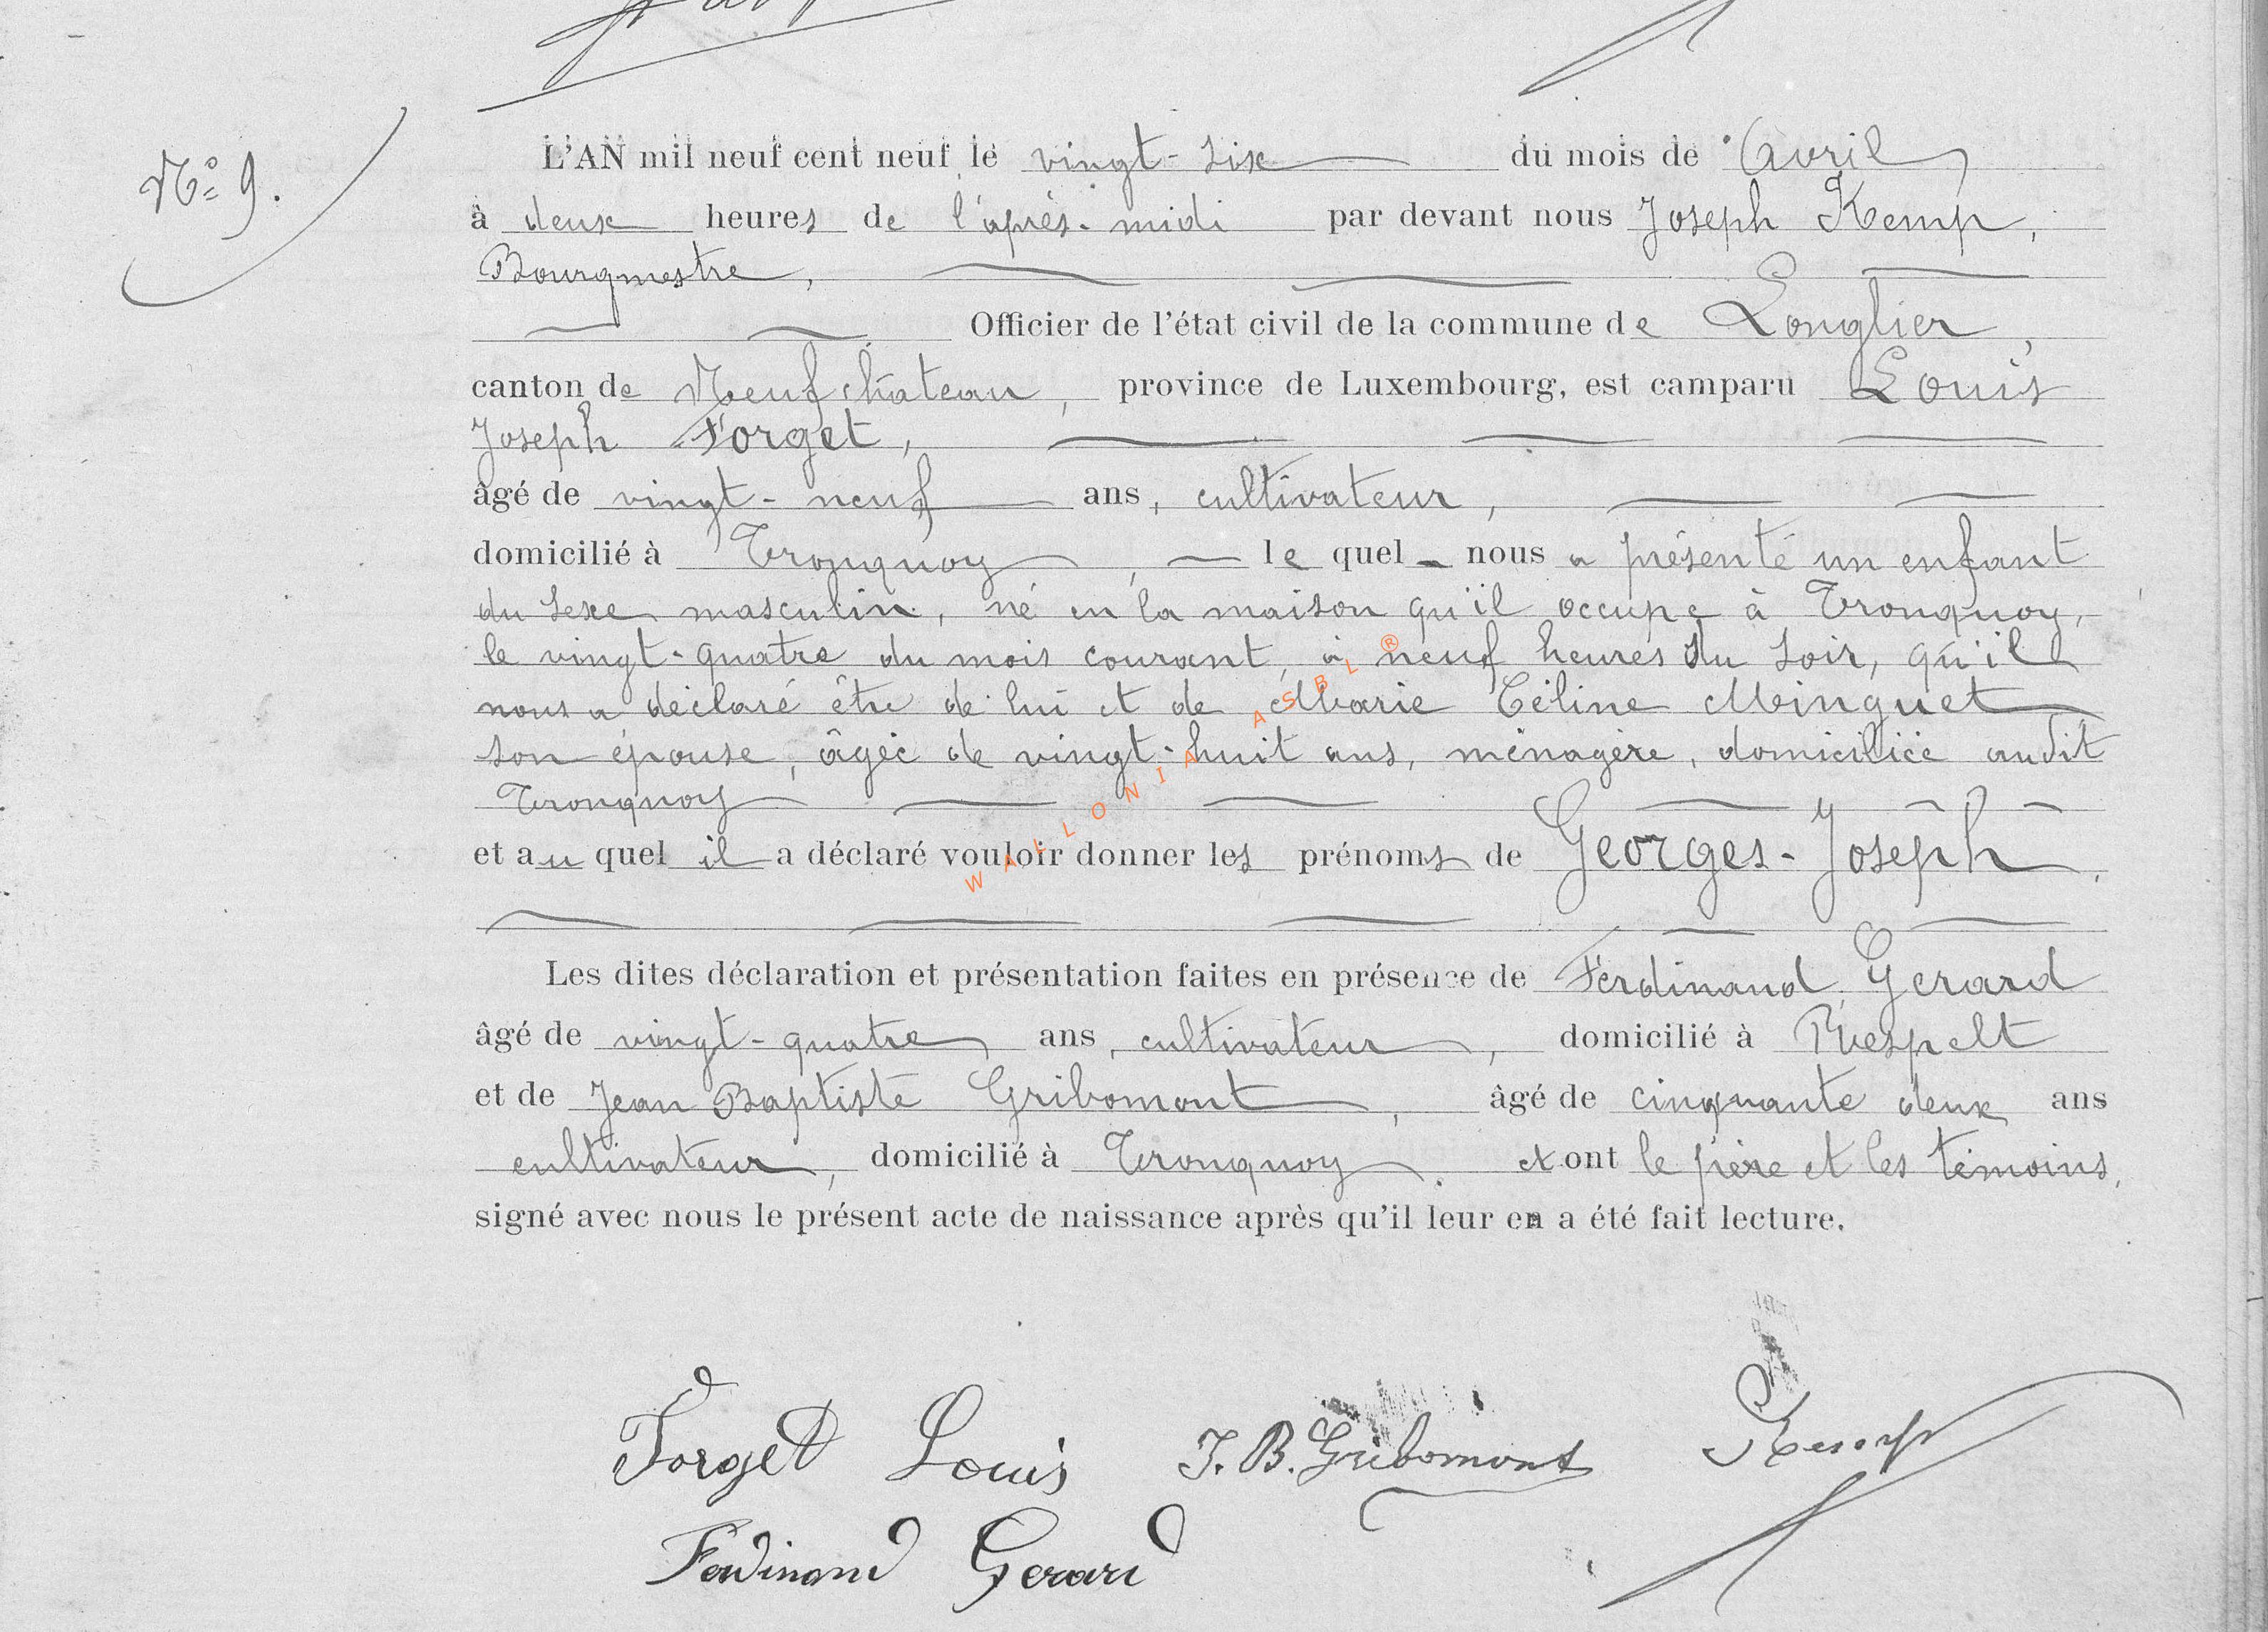 N° 9.
L'AN mil neuf cent neuf le vingt-six du mois de Avril
à deux heures de l'après-midi par devant nous Joseph Kemp,
Bourgmestre,
Officier de l'état civil de la commune de Longlier,
canton de Neufchâteau, province de Luxembourg, est camparu Louis
Joseph Forget,
âgé de vingt-neuf ans, cultivateur,
domicilié à Tronquoy, le quel nous a présenté un enfant
du sexe masculin, né en la maison qu'il occupe à Tronquoy,
le vingt-quatre du mois courant, à neuf heures du soir, qu'il
nous a déclaré être de lui et de Marie Céline Minguet
son épouse, âgée de vingt-huit ans, ménagère, domiciliée audit
Tronquoy
et au quel il a déclaré vouloir donner les prénoms de Georges-Joseph.
Les dites déclaration et présentation faites en présence de Ferdinand Gerard
âgé de vingt-quatre ans, cultivateur, domicilié à Respelt
et de Jean Baptiste Gribomont, âgé de cinquante deux ans
cultivateur, domicilié à Tronquoy. et ont le père et les témoins,
signé avec nous le présent acte de naissance après qu'il leur en a été fait lecture.
Forget Louis J. B. Gribomont Kemp
Ferdinand Gerard
WALLONIA ASBL ®